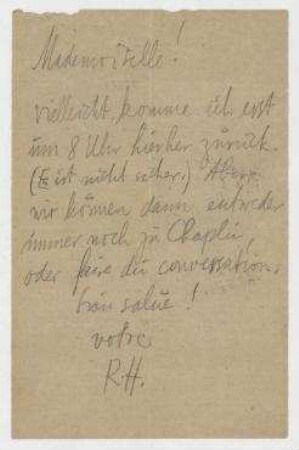 Mademoiselle!
vielleicht komme ich erst
um 8 Uhr hierher zurück.
(Es ist nicht sicher.) Aber
wir können dann entweder
immer noch zu Chaplin,
oder faire du conversation.
salue!
votre
R.H.